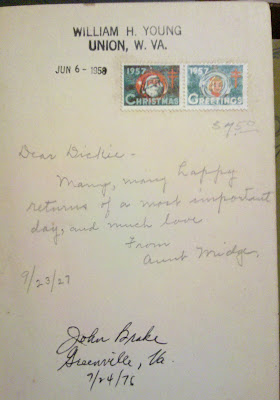 WILLIAM H. YOUNG
UNION, W. VA.
JUN 6 - 1958
1957 1957
CHRISTMAS GREETINGS
$7.50
Dear Dickie -
Many, many happy
returns of a most important
day, and much love
From
Aunt Midge.
9/23/27
John Brake
Greenville, Va.
9/24/76